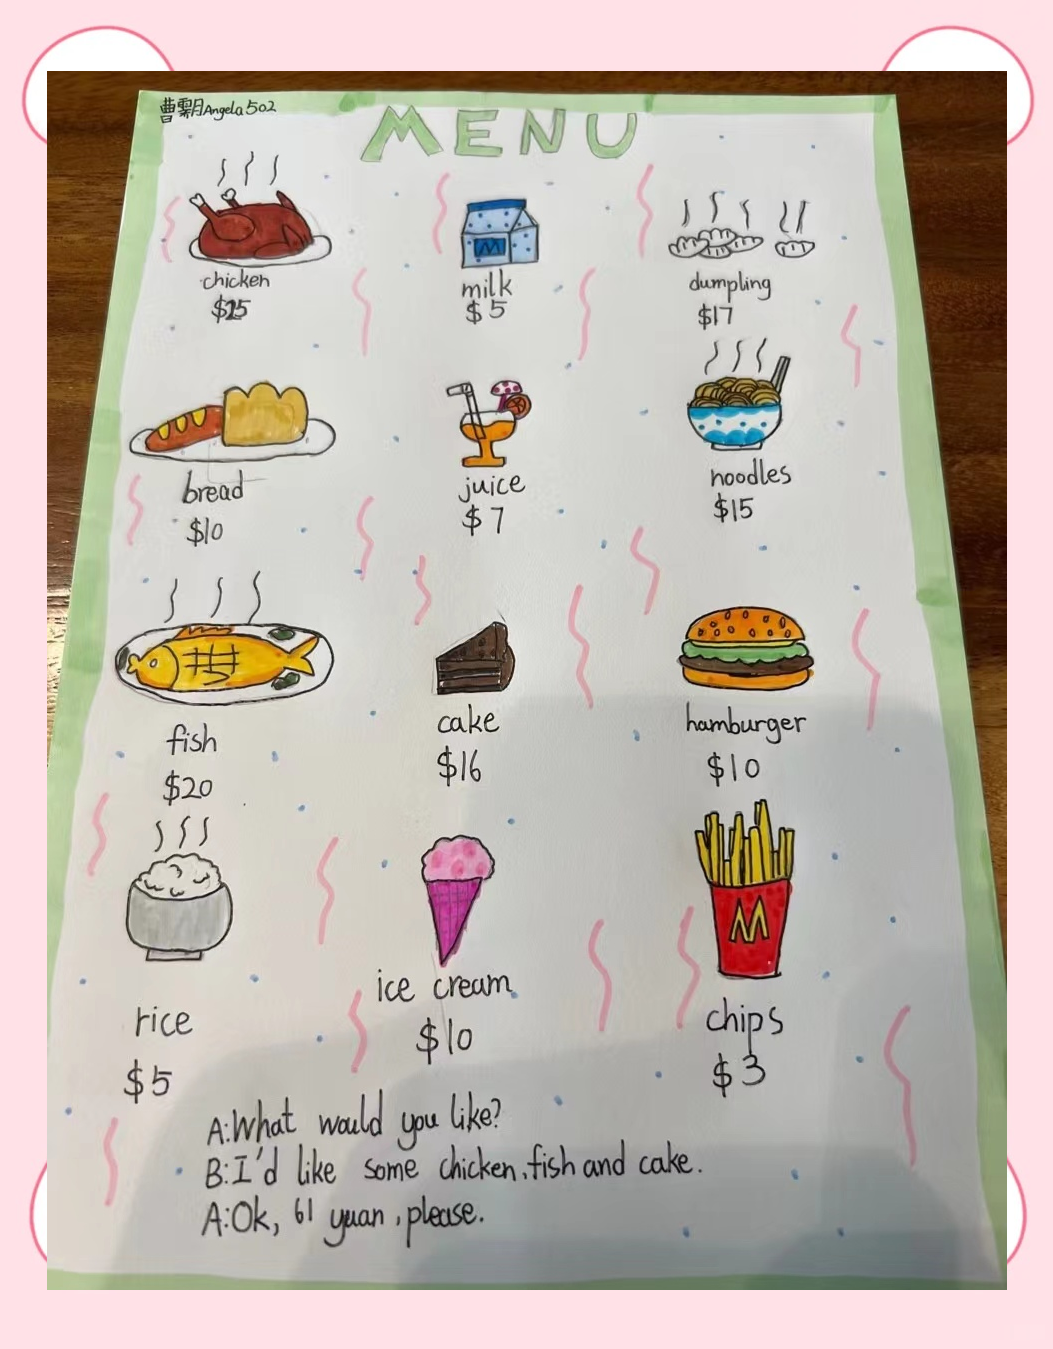 曹 Angela 502
MENU
chicken
$25
milk
$5
dumpling
$17
bread
$10
juice
$7
noodles
$15
fish
$20
cake
$16
hamburger
$10
M
rice
$5
ice cream
$10
chips
$3
A:What would you like?
B:I'd like some chicken,fish and cake.
A:Ok, 61 yuan ,please.